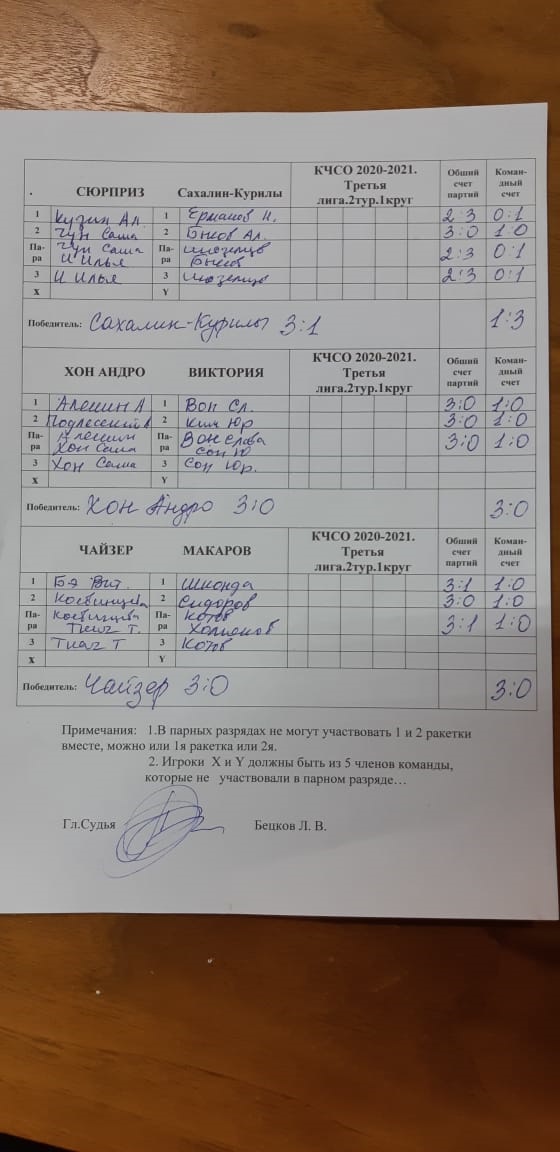 . СЮРПРИЗ Сахалин-Курилы КЧСО 2020-2021. Третья лига.2тур.1круг Обший счет партий Коман-дный счет
1 Кузин Ал 1 Ермаков Н. 2:3 0:1
2 Чун Саша 2 Быков Ал. 3:0 1:0
Па-ра Чун Саша И Илья Па-ра Быков 2:3 0:1
3 И Илья 3 2:3 0:1
X Y
Победитель: Сахалин-Курилы 3:1 1:3
ХОН АНДРО ВИКТОРИЯ КЧСО 2020-2021. Третья лига.2тур.1круг Обший счет партий Коман-дный счет
1 Алешин А 1 Вон Сл. 3:0 1:0
2 2 Ким Юр 3:0 1:0
Па-ра Алешин Хон Саша Па-ра Вон Слава Сон Ю 3:0 1:0
3 Хон Саша 3 Сон Юр.
X Y
Победитель: Хон Андро 3:0 3:0
ЧАЙЗЕР МАКАРОВ КЧСО 2020-2021. Третья лига.2тур.1круг Обший счет партий Коман-дный счет
1 Бя Вит. 1 Шконда 3:1 1:0
2 2 Сидоров 3:0 1:0
Па-ра Па-ра Котов 3:1 1:0
3 3 Котов
X Y
Победитель: Чайзер 3:0 3:0
Примечания: 1.В парных разрядах не могут участвовать 1 и 2 ракетки
вместе, можно или 1я ракетка или 2я.
2. Игроки X и Y должны быть из 5 членов команды,
которые не участвовали в парном разряде…
Гл.Судья Бецков Л. В.